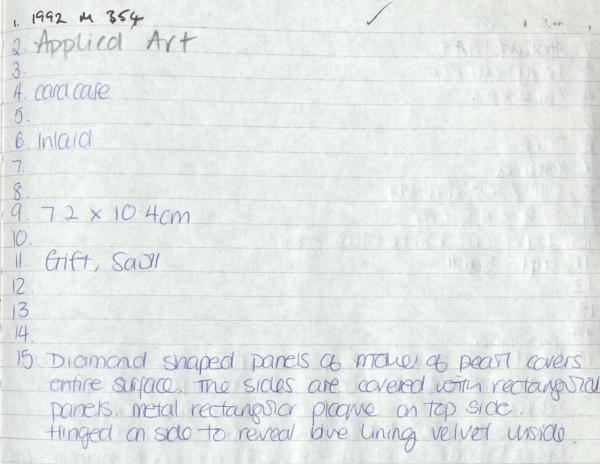 1. 1992 M 354
2. Applied Art
3.
4. cardcase
5.
6. Inlaid
7.
8.
9. 7.2 x 10.4cm
10.
11. Gift, Saoll
12.
13.
14.
15. Diamond shaped panels of mother of pearl covers
entire surface. The sides are covered with rectangular
panels. Metal rectangular plaque on top side.
Hinged on side to reveal blue lining velvet inside.